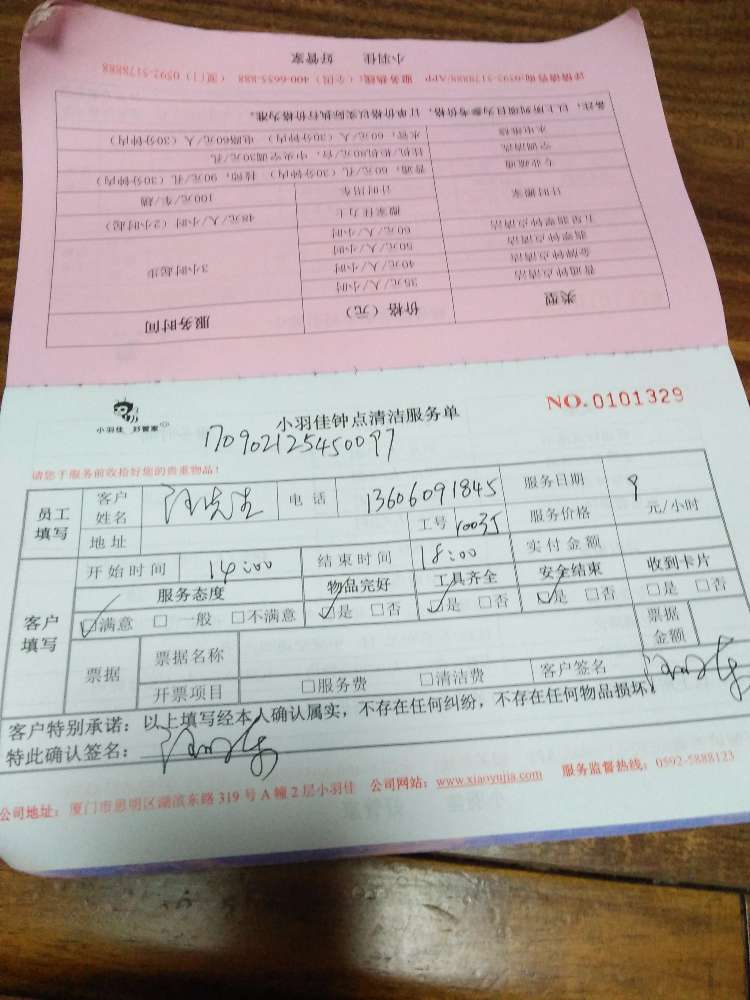 小羽佳 好管家
详情请咨询:0592-5178888/APP 服务热线:（全国）400-6655-888 （厦门）0592-5178888
备注：以上所列项目为参考价格，订单价格以实际执行价格为准。
类型 价格（元） 服务时间
普通钟点清洁 35元/人/小时 3小时起步
金牌钟点清洁 40元/人/小时
翡翠钟点清洁 50元/人/小时
五星翡翠钟点清洁 60元/人/小时
计时搬家 搬家佳力士 48元/人/小时（2小时起）
计时用车 100元/车/趟
专业疏通 普通，60元/孔（30分钟内） 拉师，90元/孔（30分钟内）
空调清洗 挂机80元/台，中央空调30元/孔
水电维修 水管，60元/人（30分钟内） 电路60元/人（30分钟内）
小羽佳 好管家
小羽佳钟点清洁服务单
NO.0101329
170902125450097
请您于服务前收拾好您的贵重物品！
员工填写 客户姓名 汪先生 电话 13606091845 服务日期 9
地址 工号 10035 服务价格 元/小时
客户填写 开始时间 14:00 结束时间 18:00 实付金额
服务态度 物品完好 工具齐全 安全结束 收到卡片
☑满意 □一般 □不满意 ☑是 □否 ☑是 □否 ☑是 □否 □是 □否
票据 票据名称 票据金额
开票项目 □服务费 □清洁费 客户签名
客户特别承诺：以上填写经本人确认属实，不存在任何纠纷，不存在任何物品损坏，
特此确认签名：
公司地址：厦门市思明区湖滨东路 319 号 A 幢 2 层小羽佳 公司网站：www.xiaoyujia.com 服务监督热线：0592-5888123